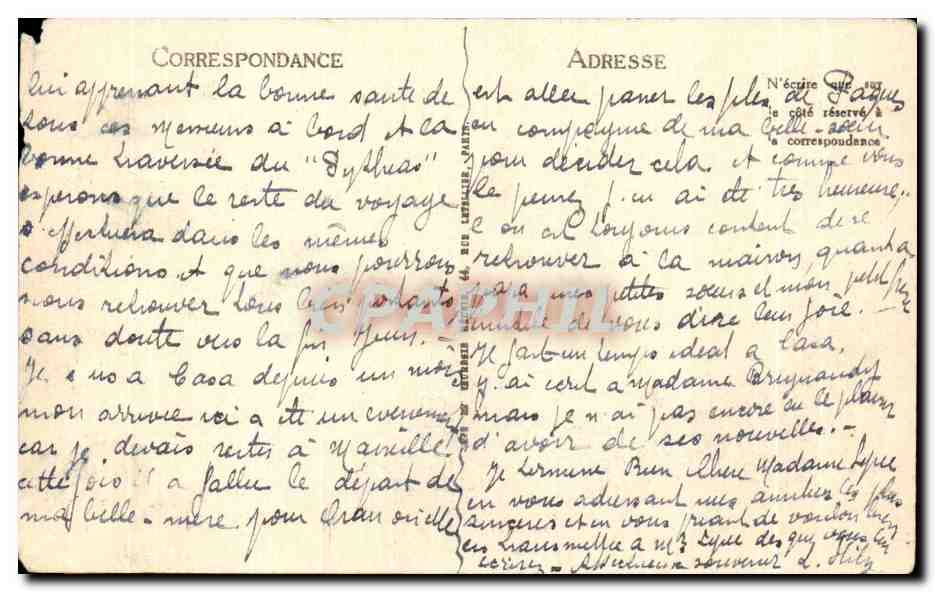 CORRESPONDANCE
lui apprenant la bonne sante de
tous ces Messieurs à bord et la
bonne traversée du "Pytheas"
esperons que le reste du voyage
s'effectuera dans les mêmes
conditions et que nous pourrons
nous retrouver tous bien portants
sans doute vers la fin Juin. -
Je suis a Casa depuis un mois
mon arrivée ici a été un evenement
car je devais rester à Marseille!
cette fois il a fallu le départ de
ma belle-mere pour Oran ou elle
ADRESSE
N'écrire que sur
le côté réservé à
la correspondance
est allee passer les fêtes de Paques
en compagnie de ma belle-soeur
pour décider cela. et comme vous
le pensez j'en ai été très heureuse,
on est toujours content de se
retrouver à la maison, quant a
papa mes petites soeurs et mon petit frere
inutile de vous dire leur joie. -
Il fait un temps ideal a Casa.
J'ai ecrit a Madame
mais je n'ai pas encore eu le plaisir
d'avoir de ses nouvelles. -
Je termine Bien Chere Madame
en vous adressant mes amities les plus
sinceres et en vous priant de vouloir bien
les transmettre a Mr des que vous lui
ecrirez - Affectueux souvenir L.
RUE LETELLIER, PARIS
CPAPHIL